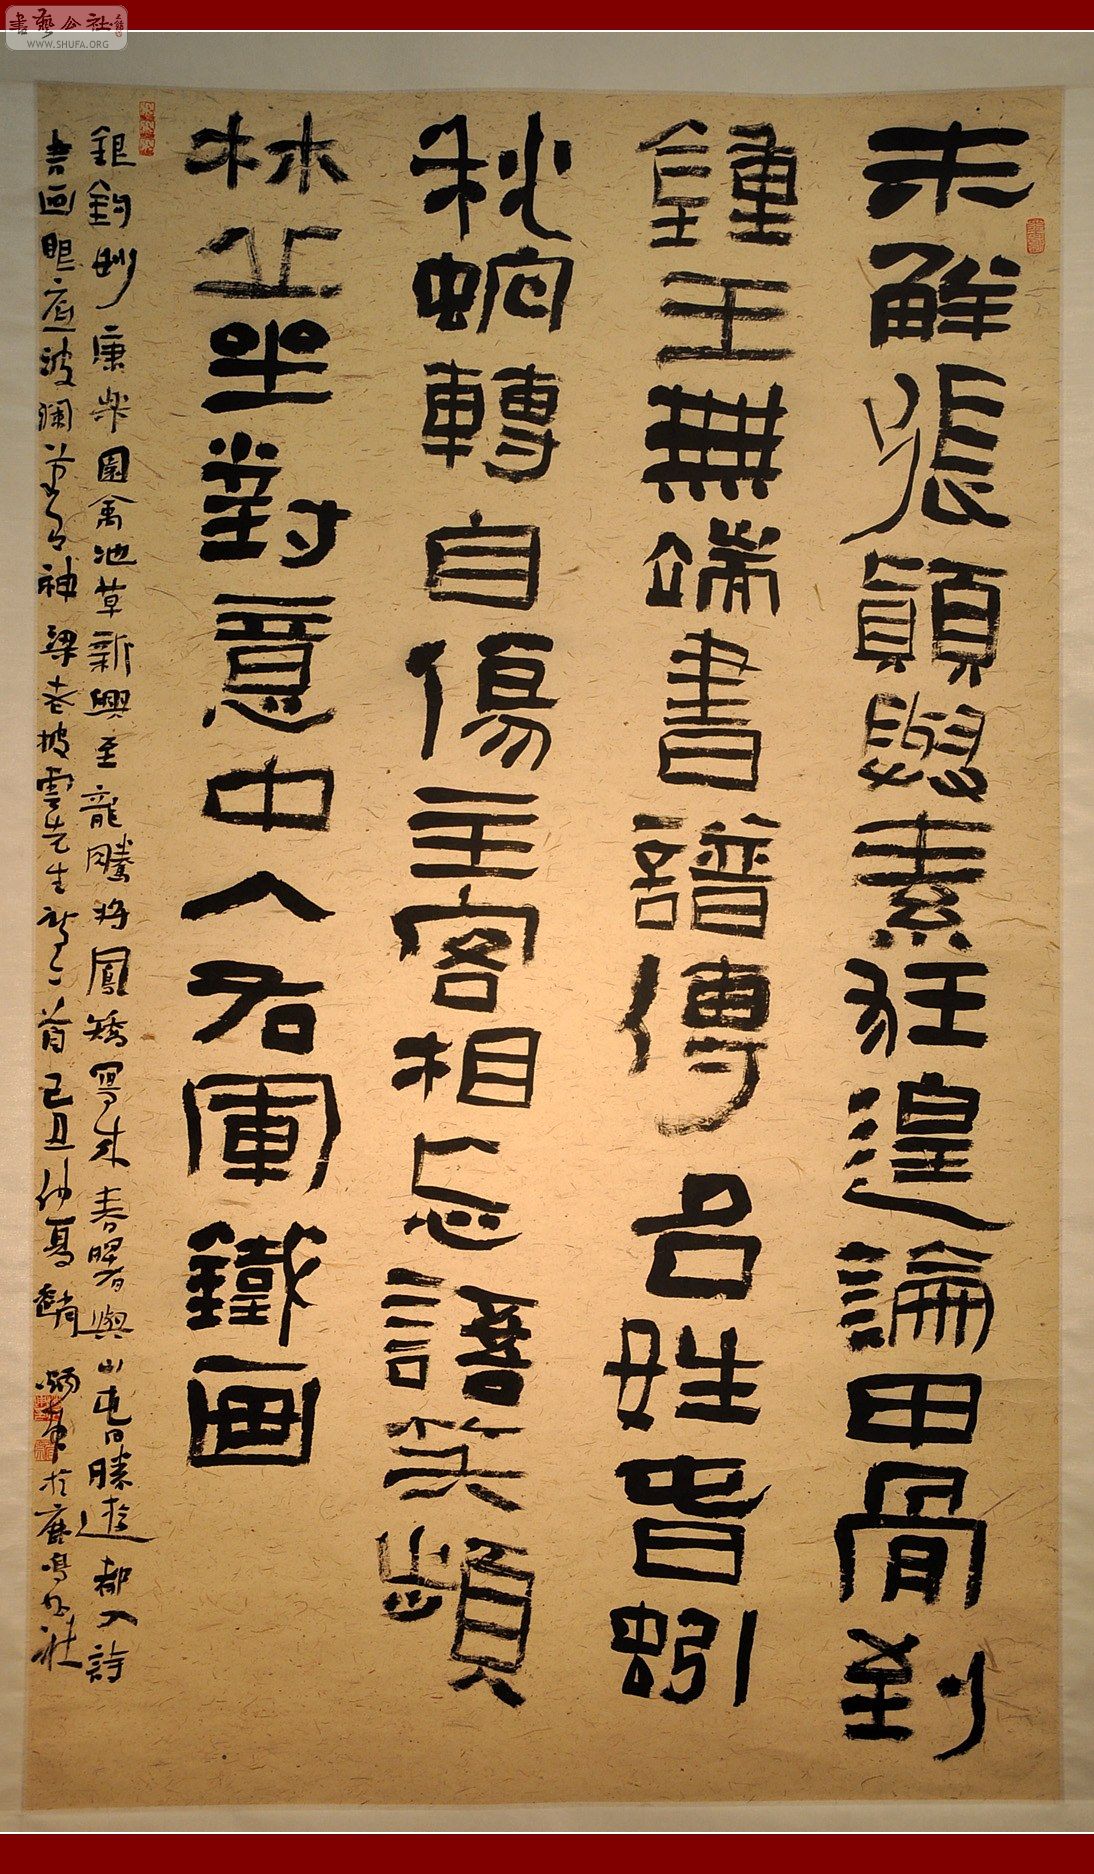 書藝公社
WWW.SHUFA.ORG
未解張顛與素狂遑論甲骨到
鍾王無端書譜傳名姓春蚓
秋蛇轉自傷主客相忘語笑頻
林止坐對意中人右軍鐵画
銀鉤妙康樂園禽池草新興至龍騰將鳳矯寫來春曙與山屯日勝遊都入詩
書画眼底波瀾筆有神梁老披雲先生詩二首己丑仲夏於鹿鳴山莊